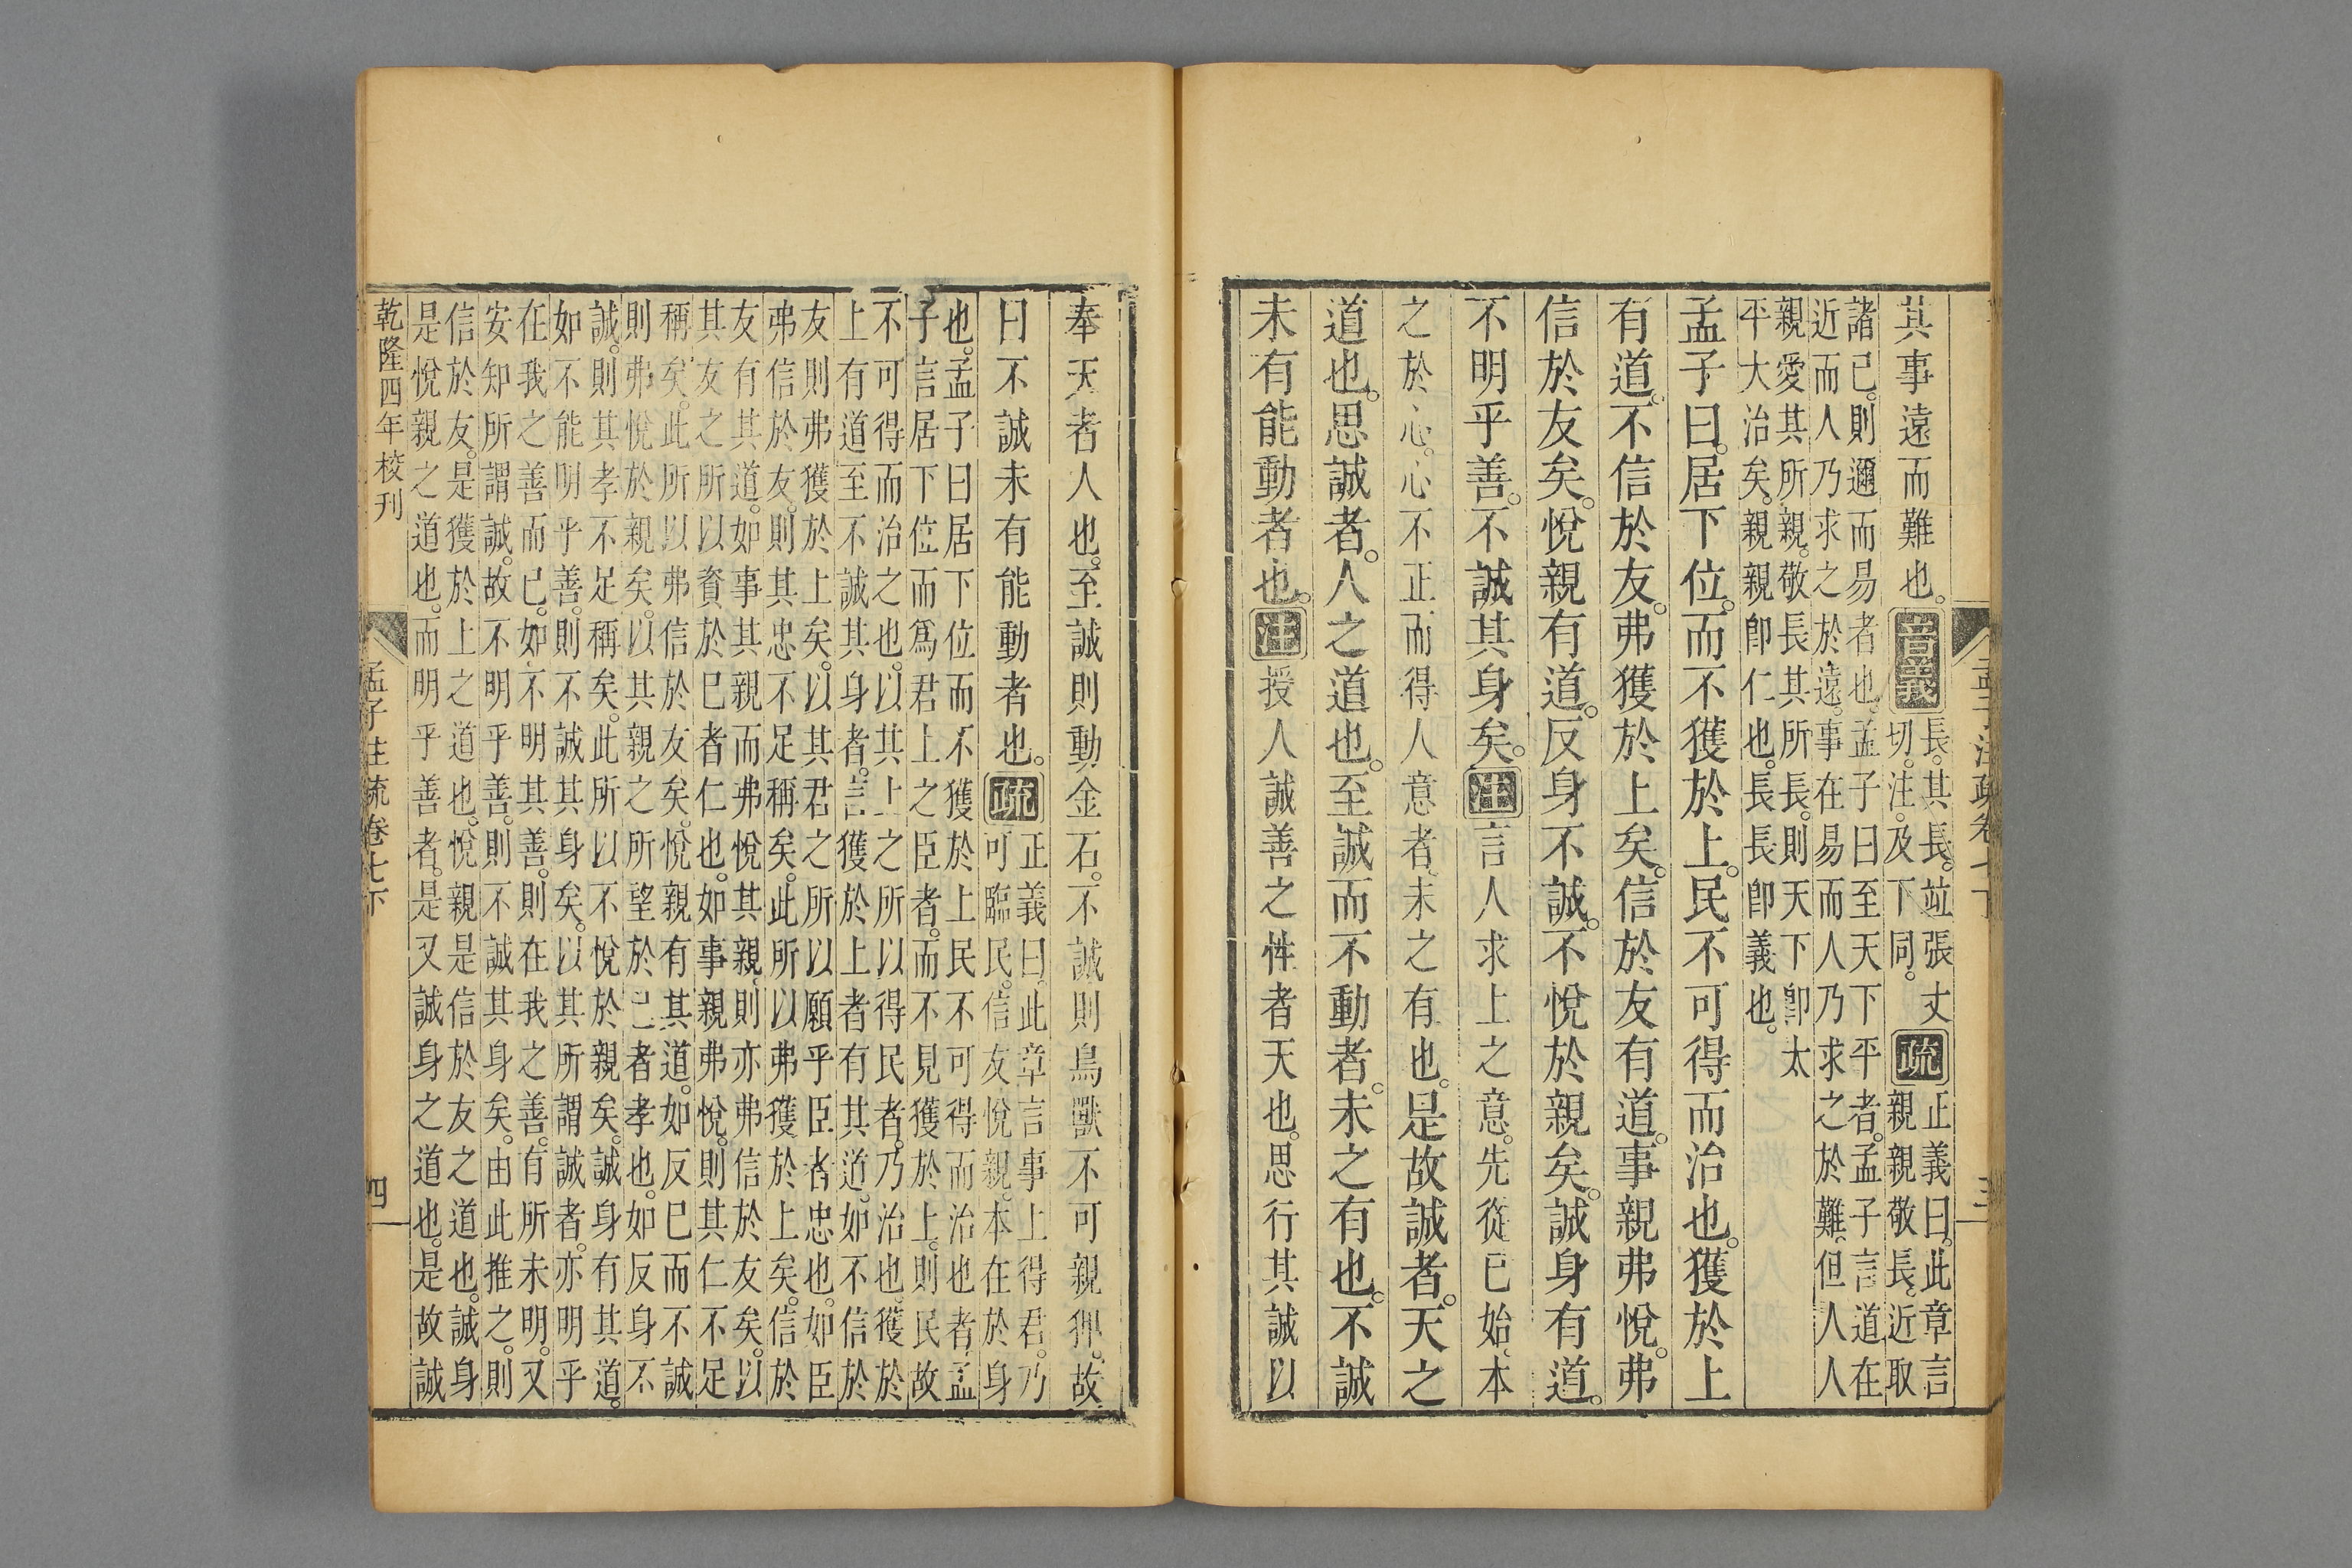 孟子注疏卷七下 三
其事遠而難也。音義
長。其長。竝張丈
切。注。及下同。
疏
正義曰。此章言
親親敬長。近取
諸己。則邇而易者也。孟子曰至天下平者。孟子言道在
近而人乃求之於遠。事在易而人乃求之於難。但人人
親愛其所親。敬長其所長。則天下卽太
平大治矣。親親卽仁也。長長卽義也。
孟子曰。居下位。而不獲於上。民不可得而治也。獲於上
有道。不信於友。弗獲於上矣。信於友有道。事親弗悅。弗
信於友矣。悅親有道。反身不誠。不悅於親矣。誠身有道。
不明乎善。不誠其身矣。注言人求上之意。先從己始。本
之於心。心不正而得人意者。未之有也。是故誠者。天之
道也。思誠者。人之道也。至誠而不動者。未之有也。不誠
未有能動者也。注授人誠善之性者天也。思行其誠以
奉天者人也。至誠則動金石。不誠則鳥獸不可親狎。故
曰不誠未有能動者也。疏
正義曰。此章言事上得君。乃
可臨民。信友悅親。本在於身
也。孟子曰居下位而不獲於上民不可得而治也者。孟
子言居下位而爲君上之臣者。而不見獲於上。則民故
不可得而治之也。以其上之所以得民者。乃治也。獲於
上有道至不誠其身者。言獲於上者有其道。如不信於
友則弗獲於上矣。以其君之所以願乎臣者忠也。如臣
弗信於友。則其忠不足稱矣。此所以弗獲於上矣。信於
友有其道。如事其親而弗悅其親。則亦弗信於友矣。以
其友之所以資於己者仁也。如事親弗悅。則其仁不足
稱矣。此所以弗信於友矣。悅親有其道。如反己而不誠
則弗悅於親矣。以其親之所望於己者孝也。如反身不
誠。則其孝不足稱矣。此所以不悅於親矣。誠身有其道。
如不能明乎善。則不誠其身矣。以其所謂誠者。亦明乎
在我之善而已。如不明其善。則在我之善。有所未明。又
安知所謂誠。故不明乎善。則不誠其身矣。由此推之。則
信於友。是獲於上之道也。悅親是信於友之道也。誠身
是悅親之道也。而明乎善者。是又誠身之道也。是故誠
乾隆四年校刊 孟子注疏卷七下 四